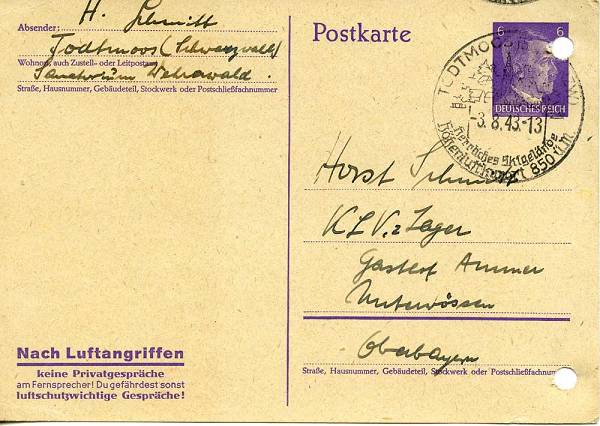 Absender: H. Schmitt
Todtmoos (Schwarzwald)
Wohnort, auch Zustell- oder Leitpostamt
Sanatorium Wehrawald.
Straße, Hausnummer, Gebäudeteil, Stockwerk oder Postschließfachnummer
Nach Luftangriffen
keine Privatgespräche
am Fernsprecher! Du gefährdest sonst
luftschutzwichtige Gespräche!
Postkarte
6 6
DEUTSCHES REICH
TODTMOOS
-3.8.43.-13
herrliches Skigelände
Höhenluftkurort 850 ü.M.
Horst Schmitt
KLV.-Lager
Gasthof Ammer
Unterwössen
Oberbayern
Straße, Hausnummer, Gebäudeteil, Stockwerk oder Postschließfachnumm